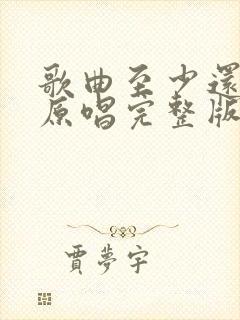 歌曲至少還
原唱完整版
賈夢宇